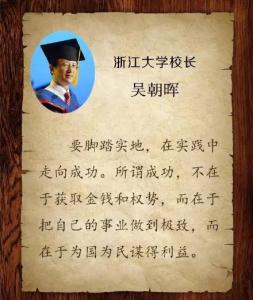 浙江大学校长
吴朝晖
要脚踏实地，在实践中
走向成功。所谓成功，不在
于获取金钱和权势，而在于
把自己的事业做到极致，而
在于为国为民谋得利益。